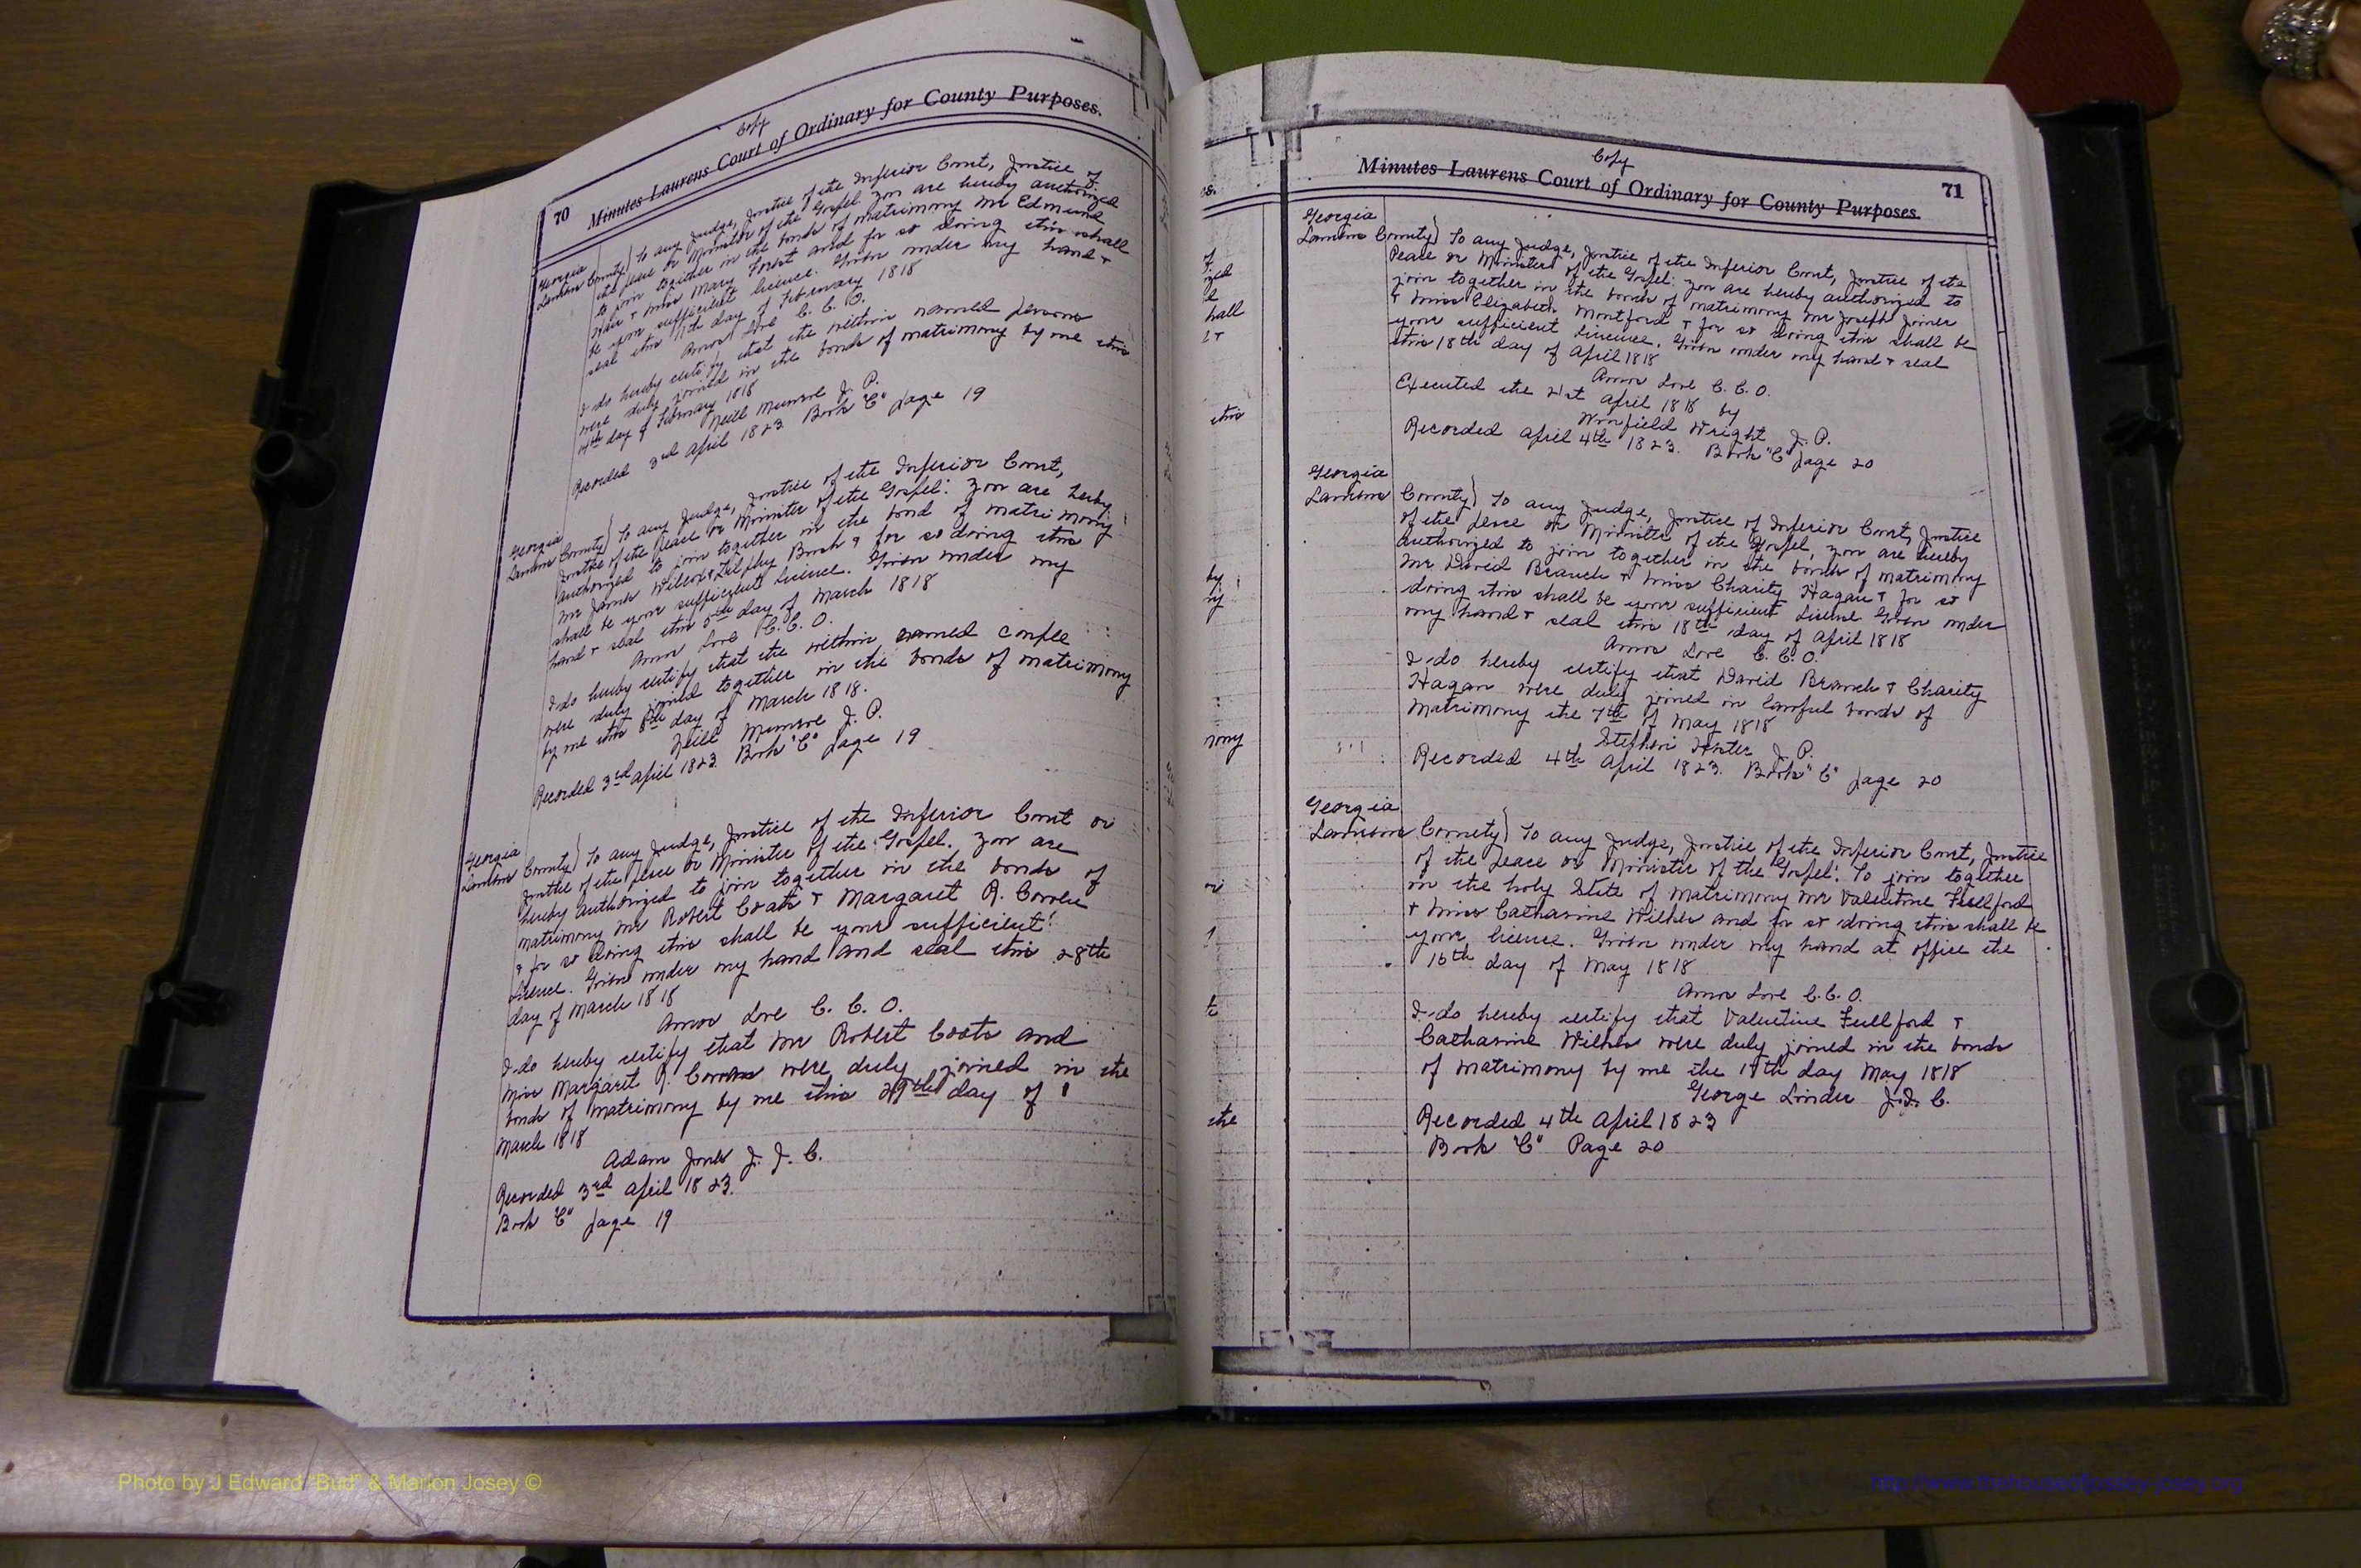 Copy
70 Minutes Laurens Court of Ordinary for County Purposes.
Georgia
Laurens County) To any Judge, Justice of the Inferior Court, Justice of
the peace or Minister of the Gospel you are hereby authorized
to join together in the bonds of matrimony Mr Edmund
Hair & miss Mary Forest and for so doing this shall
be your sufficient licence. Given under my hand &
seal this 11th day of February 1818
Amos Love C. C. O.
I do hereby certify that the within named persons
were duly joined in the bonds of matrimony by me this
day of February 1818
Neill Munroe J. P.
Recorded 3rd April 1823. Book "C" page 19
Georgia
Laurens County) To any Judge, Justice of the Inferior Court,
Justice of the peace or Minister of the Gospel: You are herby
authorized to join together in the bond of matrimony
Mr James Wilson & Zilphy Bush & for so doing this
shall be your sufficient licence. Given under my
hand & seal this 5th day of March 1818
Amos Love C. C. O.
I do hereby certify that the within named couple
were duly joined together in the bonds of matrimony
by me this 8th day of March 1818.
Neill Munroe J. P.
Recorded 3rd April 1823. Book "C" page 19
Georgia
Laurens County) To any Judge, Justice of the Inferior Court or
Justice of the peace or Minister of the Gospel. You are
hereby authorized to join together in the bonds of
matrimony Mr Robert Coats & Margaret R.
& for so doing this shall be your sufficient
licence. Given under my hand and seal this 28th
day of March 1818
Amos Love C. C. O.
I do hereby certify that Mr Robert Coats and
Miss Margaret were duly joined in the
bonds of matrimony by me this 29th day of
March 1818
Adam Jones J. I. C.
Recorded 3rd April 1823.
Book "C" page 19
Copy
Minutes Laurens Court of Ordinary for County Purposes. 71
Georgia
Laurens County) To any Judge, Justice of the Inferior Court, Justice of the
Peace or Minister of the Gospel: you are hereby authorized to
join together in the bonds of matrimony Mr Joseph Joiner
& Miss Elizabeth Montford & for so doing this shall be
your sufficient licence. Given under my hand & seal
this 18th day of April 1818
Amos Love C. C. O.
Executed the 21st April 1818 by
Winfield Wright J. P.
Recorded April 4th 1823. Book "C" page 20
Georgia
Laurens County) To any Judge, Justice of Inferior Court, Justice
of the peace or Minister of the Gospel, you are hereby
authorized to join together in the bonds of matrimony
Mr David Branch & Miss Charity Hagan & for so
doing this shall be your sufficient License Given under
my hand & seal this 18th day of April 1818
Amos Love C. C. O.
I do hereby certify that David Branch & Charity
Hagan were duly joined in lawful bonds of
Matrimony the 7th of May 1818
Stephen J. P.
Recorded 4th April 1823. Book "C" page 20
Georgia
Laurens County) To any Judge, Justice of the Inferior Court, Justice
of the peace or Minister of the Gospel: To join together
in the holy State of matrimony Mr Valentine Fullford
& Miss Catharine Wilkes and for so doing this shall be
your licence. Given under my hand at office the
16th day of May 1818
Amos Love C. C. O.
I do hereby certify that Valentine Fullford &
Catharine Wilkes were duly joined in the bonds
of matrimony by me the 17th day May 1818
George Linder J. I. C.
Recorded 4th April 1823
Book "C" Page 20
Photo by J Edward "Bud" & Marion Josey ©
http://www.thehouseofjossey-josey.org